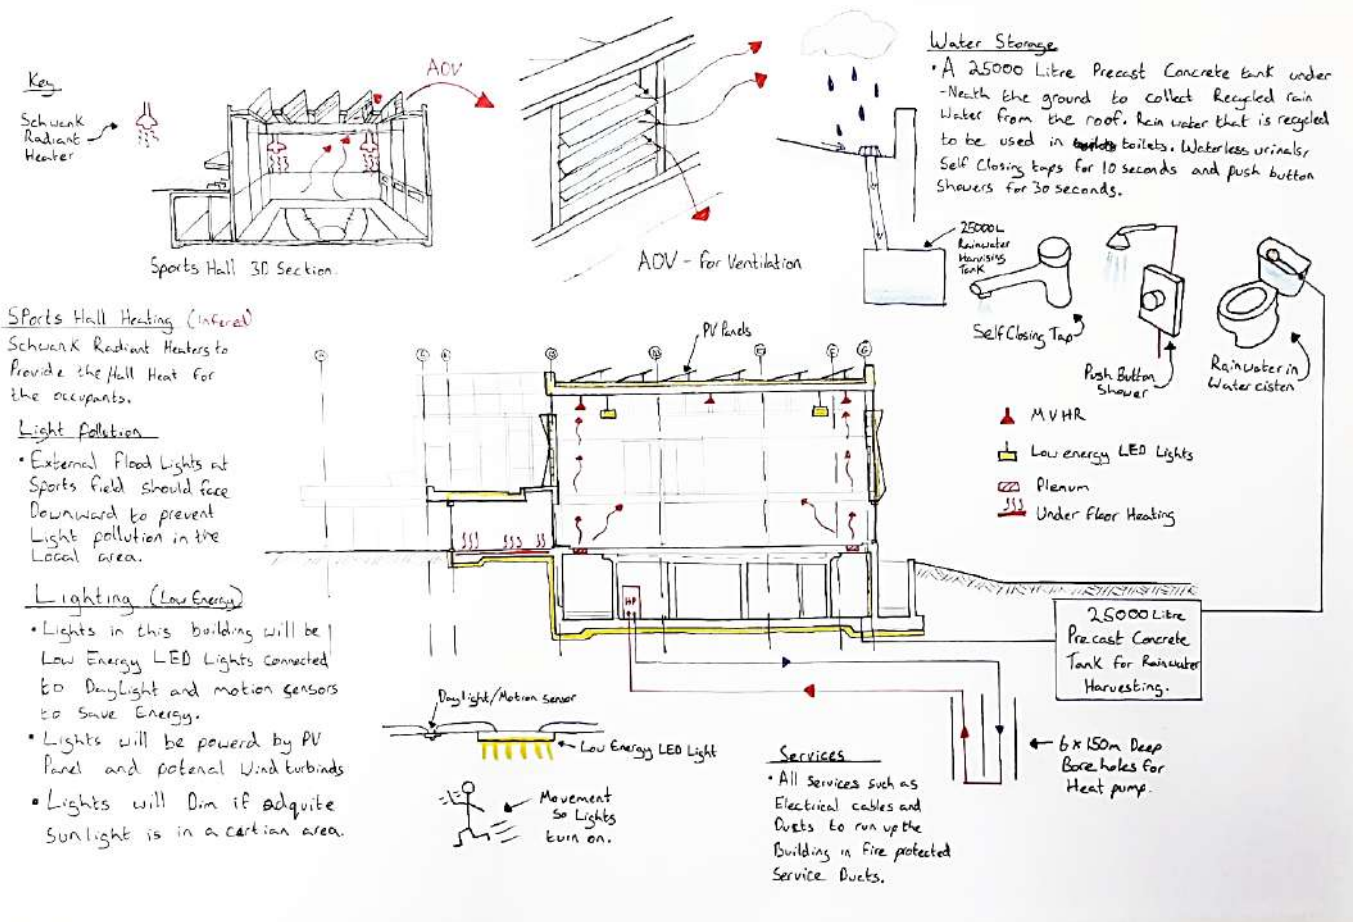 Key
Schwank
Radiant
Heater
AOV
Sports Hall 3D Section.
AOV - For Ventilation
Water Storage
• A 25000 Litre Precast Concrete tank under
-Neath the ground to collect Recycled rain
Water from the roof. Rain water that is recycled
to be used in toilets. Waterless urinals,
Self Closing taps for 10 seconds and push button
Showers for 30 seconds.
25000L
Rainwater
Harvising
Tank
Self Closing Tap
Push Button
Shower
Rainwater in
Water cisten
Sports Hall Heating (Infered)
Schwank Radiant Heaters to
Provide the Hall Heat for
the occupants.
Light Pollution
• External Flood Lights at
Sports field Should face
Downward to prevent
Light pollution in the
Local area.
Lighting (Low Energy)
• Lights in this building will be
Low Energy LED Lights connected
to Daylight and motion sensors
to Save Energy.
• Lights will be powerd by PV
Panel and potenal Wind turbinds
• Lights will Dim if adquite
Sunlight is in a cartian area.
PV Panels
MVHR
Low energy LED Lights
Plenum
Under Floor Heating
HP
25000 Litre
Precast Concrete
Tank for Rainwater
Harvesting.
6 x 150m Deep
Bore holes for
Heat pump.
Daylight/Motion Sensor
Low Energy LED Light
Movement
So Lights
turn on.
Services
• All Services such as
Electrical cables and
Ducts to run up the
Building in Fire protected
Service Ducts.